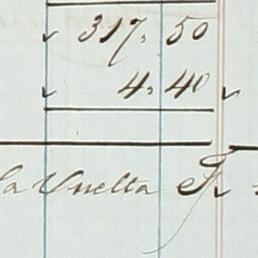 317, 50
4, 40
la Vuelta F.